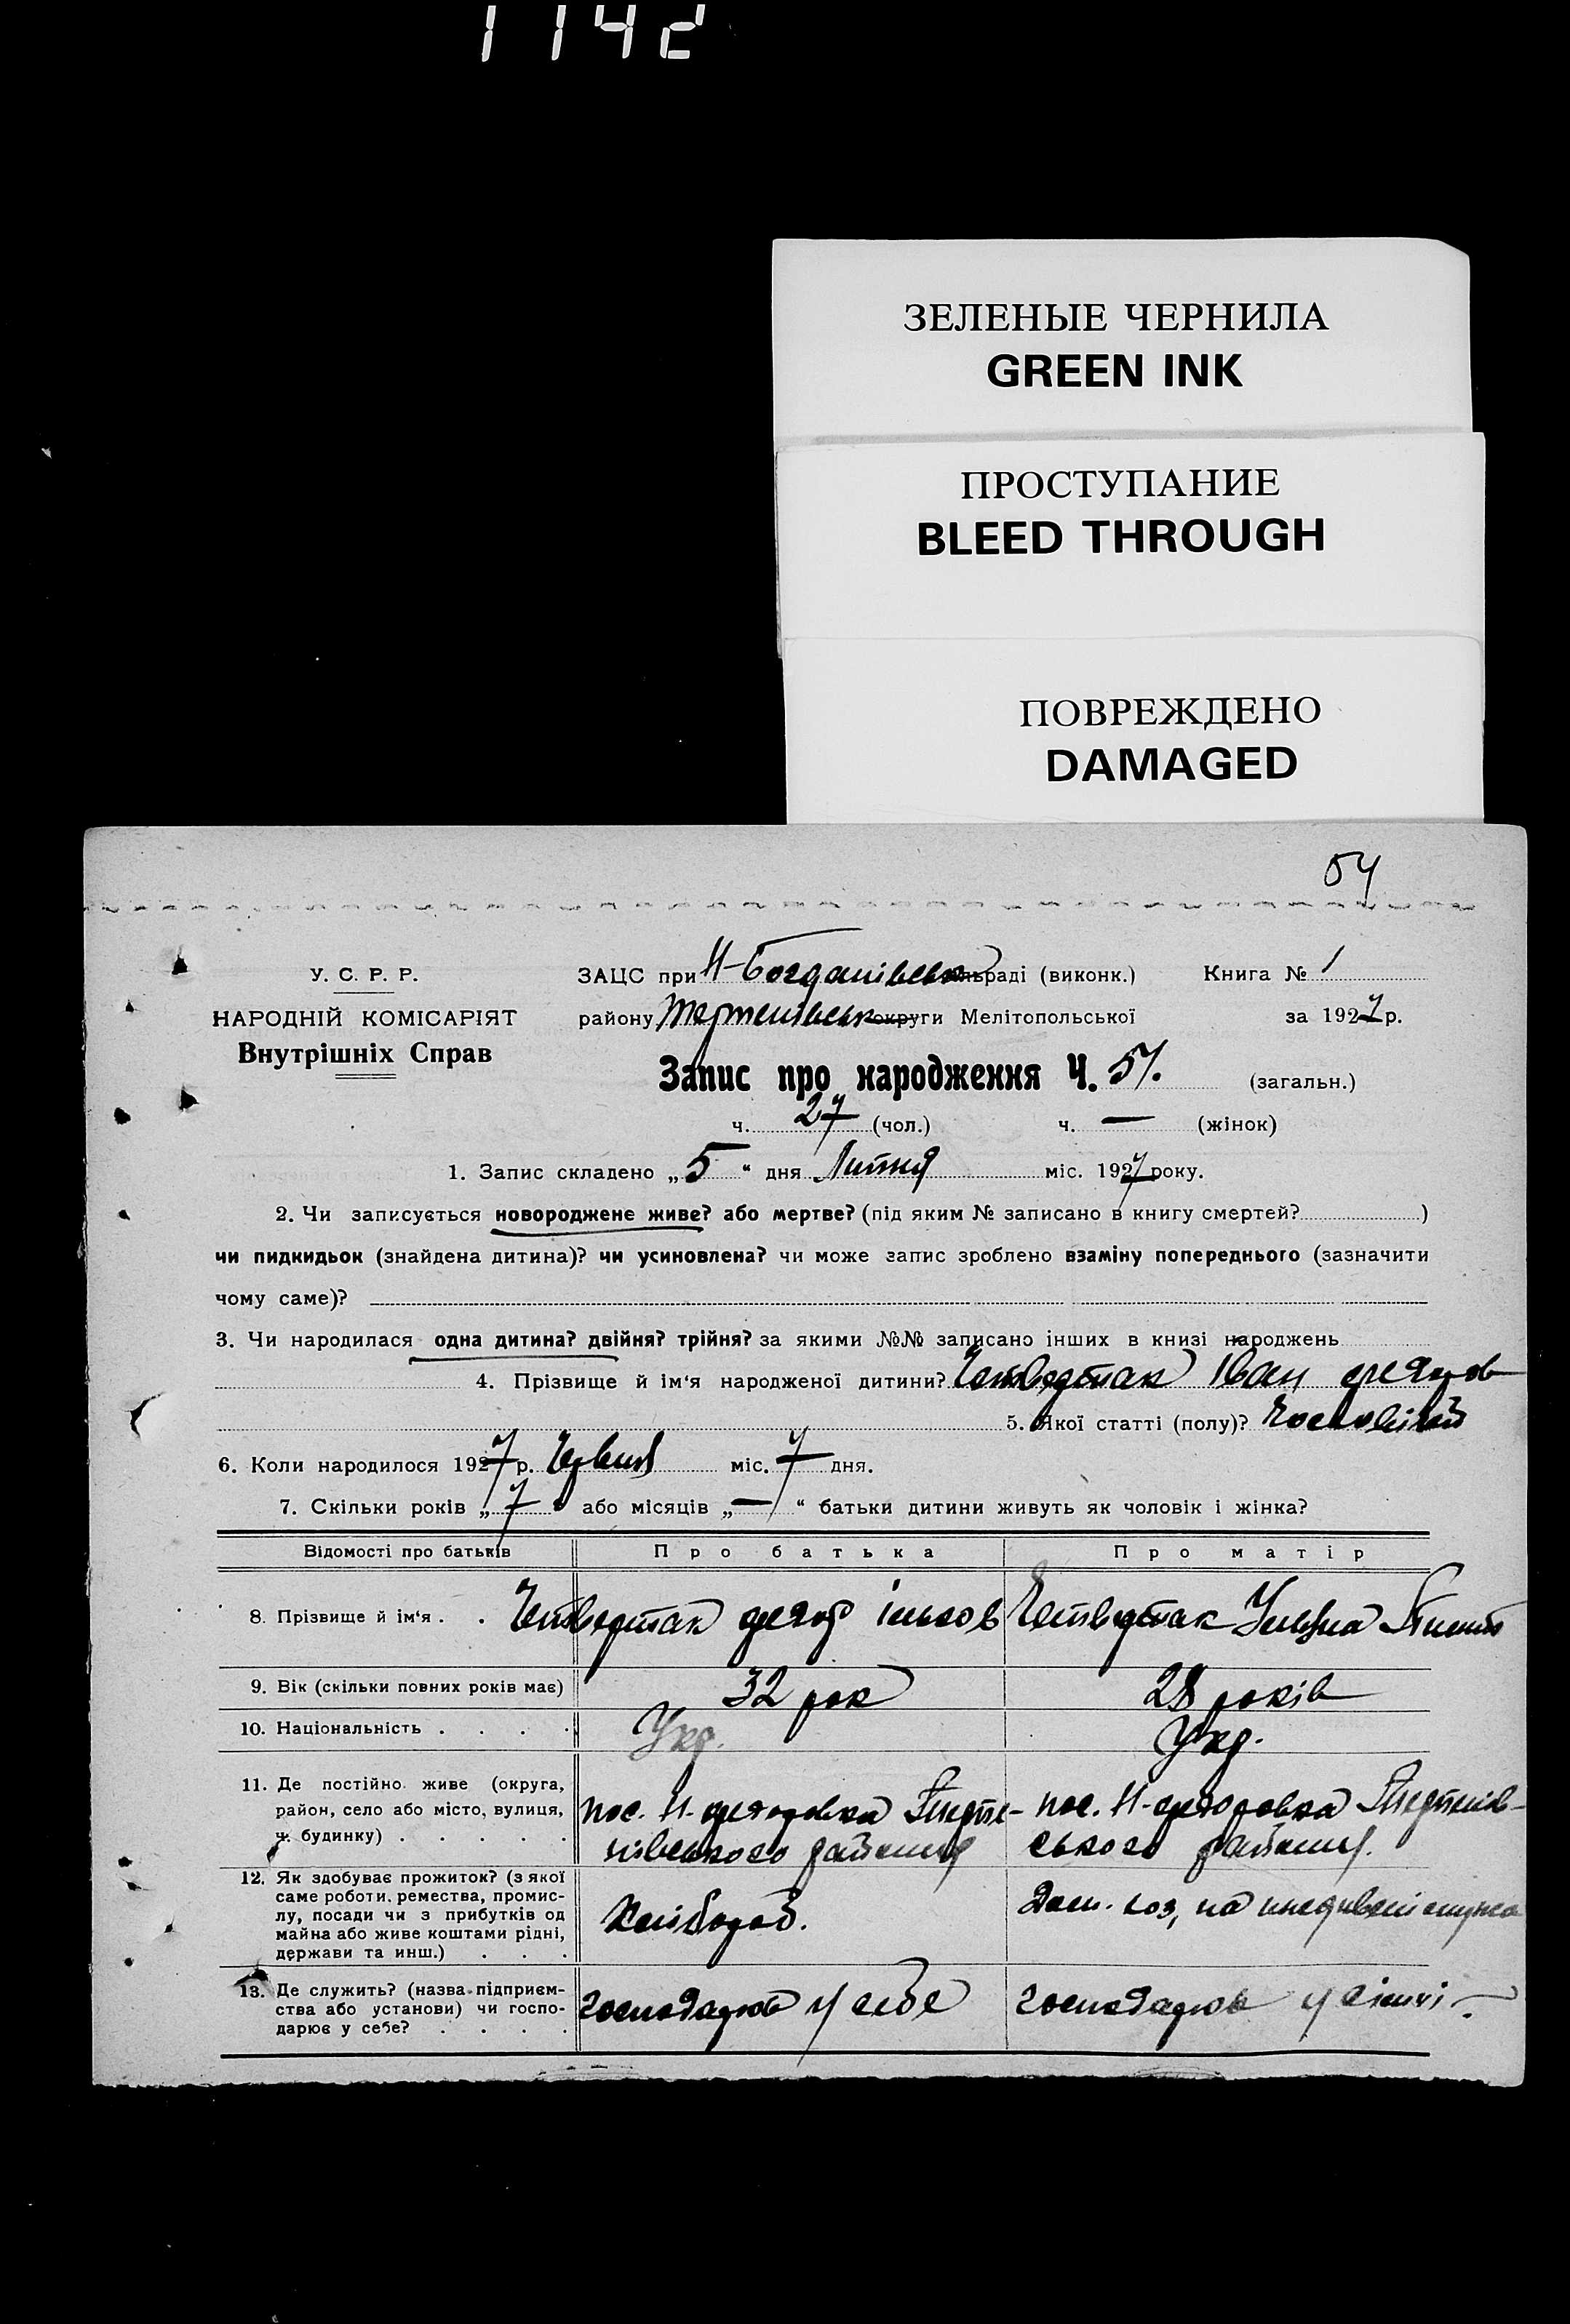 1142
ЗЕЛЕНЫЕ ЧЕРНИЛА
GREEN INK
ПРОСТУПАНИЕ
BLEED THROUGH
ПОВРЕЖДЕНО
DAMAGED
54
У. С. Р. Р.
НАРОДНІЙ КОМІСАРІЯТ
Внутрішніх Справ
ЗАЦС при Н-Богданівськ раді (виконк.) Книга № 1
району округи Мелітопольської за 1927 р.
Запис про народження Ч. 51. (загальн.)
ч. 27 (чол.) ч. — (жінок)
1. Запис складено „ 5 “ дня Липня міс. 1927 року.
2. Чи записується новороджене живе? або мертве? (під яким № записано в книгу смертей? )
чи пидкидьок (знайдена дитина)? чи усиновлена? чи може запис зроблено взаміну попереднього (зазначити
чому саме)?
3. Чи народилася одна дитина? двійня? трійня? за якими №№ записано інших в книзі народжень
4. Прізвище й ім‘я народженої дитини? Четвертак Іван федоров
5. Якої статті (полу)? Чоловічий
6. Коли народилося 1927 р. Червня міс. 7 дня.
7. Скільки років „ 7 “ або місяців „ — “ батьки дитини живуть як чоловік і жінка?
Відомості про батьків Про батька Про матір
8. Прізвище й ім‘я . . Четвертак федор Ільков Четвертак
9. Вік (скільки повних років має) 32 рок 28 років
10. Національність . . . . Укр. Укр.
11. Де постійно живе (округа,
район, село або місто, вулиця,
ч. будинку) . . . . .
пос. Н-федоровка
нівського району
пос. Н-федоровка
ського району.
12. Як здобуває прожиток? (з якої
саме роботи, ремества, промис-
лу, посади чи з прибутків од
майна або живе коштами рідні,
держави та инш.) . . .
Хлібороб.
на
13. Де служить? (назва підприєм-
ства або установи) чи госпо-
дарює у себе? . . . .
господарює у себе
господарює у